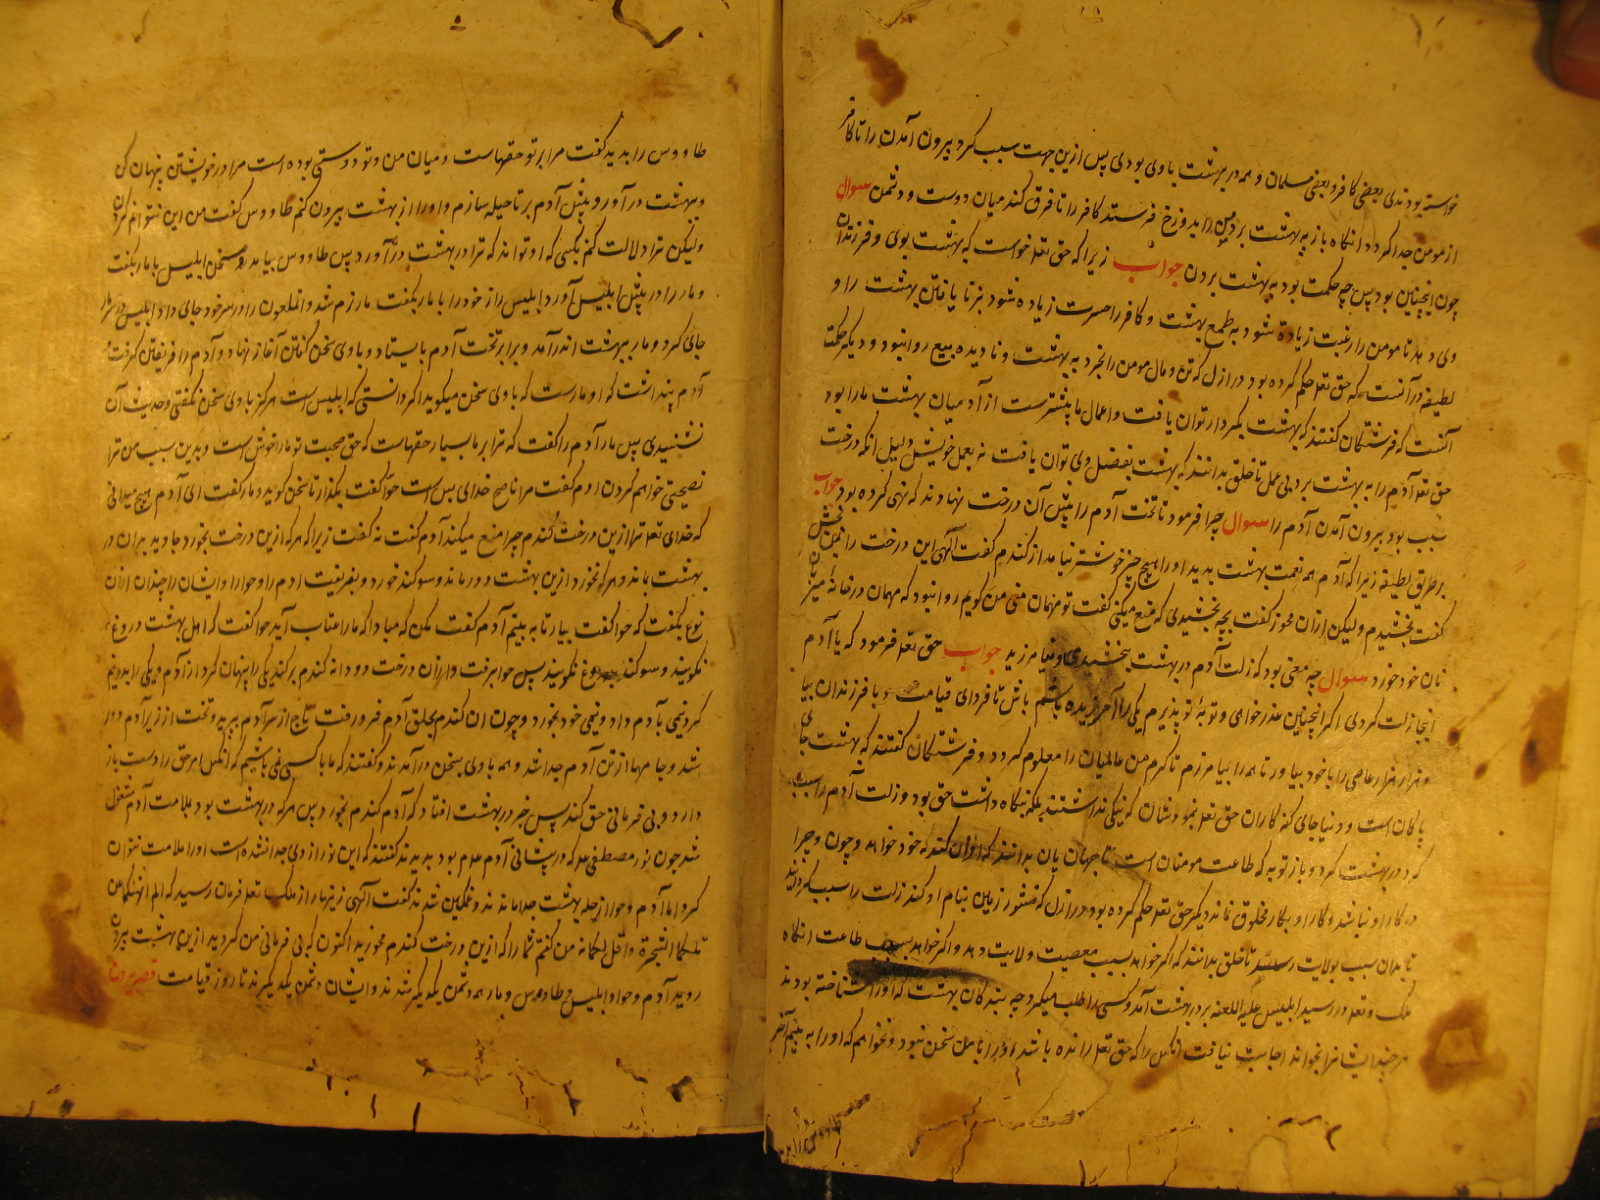 خواسته بودندی بعضی کافر و بعضی مسلمان و همه در بهشت با وی بودی پس ازین جهت سبب کرد بیرون آمدن را تا کافر
از مومن جدا کردد انکاه باز به بهشت برد مومن را بدوزخ فرستد کافر را تا فرق کند میان دوست و دشمن سوال
چون اینچنین بود پس چه حکمت بود به بهشت بردن جواب زیرا که حق تعه خواست که بهشت بوی و فرزندان
وی دهد تا مومن را رغبت زیاده شود به طمع بهشت و کافر را حسرت زیاده شود بر نایافتن بهشت را و
لطیفه در آنست که حق تعه حکم کرده بود در ازل که تن و مال مومن را بخرد به بهشت و نادیده بیع روا نبود و دیکر حکمت
آنست که فرشتکان کفتند که بهشت بکردار توان یافت و اعمال ما بیشترست از آدمیان بهشت ما را بود
حق تعه آدم را به بهشت برد بی عمل تا خلق بدانند که بهشت بفضل وی توان یافت نه بعمل خویش دلیل انکه درخت
سبب بود بیرون آمدن آدم را سوال چرا فرمود تا تخت آدم را پیش آن درخت نهادند که نهی کرده بود جواب
بر طریق لطیفه زیرا که آدم همه نعمت بهشت بدید او را هیچ چیز خوشتر نیامد از کندم کفت الهی این درخت را بمن بخش
کفت بخشیدم ولیکن ازان مخور کفت بچه بخشیدی که منع میکنی کفت تو مهمان منی من کویم روا نبود که مهمان در خانهٔ میزبان
نان خود خورد سوال چه معنی بود که زلت آدم در بهشت بخشیدی و نیامرزید جواب حق تعه فرمود که یا آدم
اینجا زلت کردی اکر اینچنین عذر خواهی و توبهٔ تو پذیرم یکی را آمرزیده باشم باش تا فردای قیامت با فرزندان بیا
و هزار هزار عاصی را با خود بیاور تا همه را بیامرزم تا کرم من عالمیان را معلوم کردد و فرشتکان کفتند که بهشت جای
پاکان است و دنیا جای کنه کاران حق تعه نمودشان که نیکی نداشتند بلکه نکاه داشت حق بود و زلت آدم را سبب
کرد در بهشت کرد و باز توبه که طاعت مومنان است تا جهانیان بدانند که او آن کند که خود خواهد و چون و چرا
در کار او نباشد و کار او بکار مخلوق نماند دیکر حق تعه حکم کرده بود در ازل که منشور زمین بنام او کند زلت را سبب کردانید
تا بدان سبب بولایت رسد تا خلق بدانند که اکر خواهد بسبب معصیت ولایت دهد و اکر خواهد بسبب طاعت انکاه
ملک و تعه در رسید ابلیس علیه اللعنه بر در بهشت آمد و کسی را طلب میکرد چه بندکان بهشت که او را شناخته بودند
هر چند ایشانرا بخواند اجابت نیافت انکس را که حق تعه رانده باشد او را با من سخن نبود و نخواهم که او را به بینم آخر
طاووس را بدید
طاووس را بدید کفت مرا بر تو حقهاست و میان من و تو دوستی بوده است مرا در خویشتن پنهان کن
و ببهشت درآور و پیش آدم بر تا حیله سازم و او را از بهشت بیرون کنم طاووس کفت من این نتوانم کردن
ولیکن ترا دلالت کنم بکسی که او تواند که ترا در بهشت درآورد پس طاووس بیامد و سخن ابلیس با مار بکفت
و مار را در پیش ابلیس آورد ابلیس راز خود را با مار بکفت مار نرم شد و انملعون را در سر خود جای داد ابلیس در سر مار
جای کرد و مار ببهشت اندرآمد و برابر تخت آدم بایستاد و با وی سخن کفتن آغاز نهاد و آدم را فریفتن کرفت
آدم پنداشت که او مارست که با وی سخن میکوید اکر دانستی که ابلیس است هرکز با وی سخن نکفتی و حدیث آن
نشنیدی پس مار آدم را کفت که ترا بر ما بسیار حقهاست که حق صحبت تو ما را خوش است و بدین سبب من ترا
نصیحتی خواهم کردن ادم کفت مرا ناصح خدای بس است حوا کفت بکذار تا سخن کوید و مار کفت ای آدم هیچ میدانی
که خدای تعه ترا ازین درخت کندم چرا منع میکند آدم کفت نه کفت زیرا که هر که ازین درخت بخورد جاوید بدان در
بهشت بماند و هر که نخورد ازین بهشت دور ماند و سوکند خورد و بفریفت ادم را و حوا را و ایشان را چندان ازان
نوع بکفت که حوا کفت بیا تا به بینیم آدم کفت مکن که مبادا که ما را عتاب آید حوا کفت که اهل بهشت دروغ
نکویند و سوکند بدروغ نکویند پس حوا برفت و ازان درخت دو دانه کندم برکند یکی را پنهان کرد از آدم و یکی را بدونیم
کرد و نیمی بآدم داد و نیمی خود بخورد و چون ان کندم بحلق آدم فرو رفت تاج از سر آدم بپرید و تخت از زیر آدم دور
شد و جامها از تن آدم جدا شد و همه با وی بسخن درآمدند و کفتند که ما با کسی نمی باشیم که انکس امر حق را دست باز
دارد و بی فرمانی حق کند پس خبر در بهشت افتاد که آدم کندم بخورد پس هر که در بهشت بود بملامت آدم مشغول
شد چون نور مصطفی علم که در پیشانی آدم علم بود بدیدند کفتند که این نور از وی جدا نشده است او را ملامت نتوان
کرد و اما آدم و حوا از جمله بهشت جدا ماندند و غمکین شدند کفت الهی زینهار از ملک تعه فرمان رسید که الم انهکما عن
تلکما الشجرة و اقل لکما نه من کفتم شما را که ازین درخت کندم مخورید اکنون که بی فرمانی من کردید ازین بهشت بیرون
روید آدم و حوا و ابلیس و طاووس و مار همه دشمن یکدیکر شدند و ایشان دشمن یکدیکرند تا روز قیامت